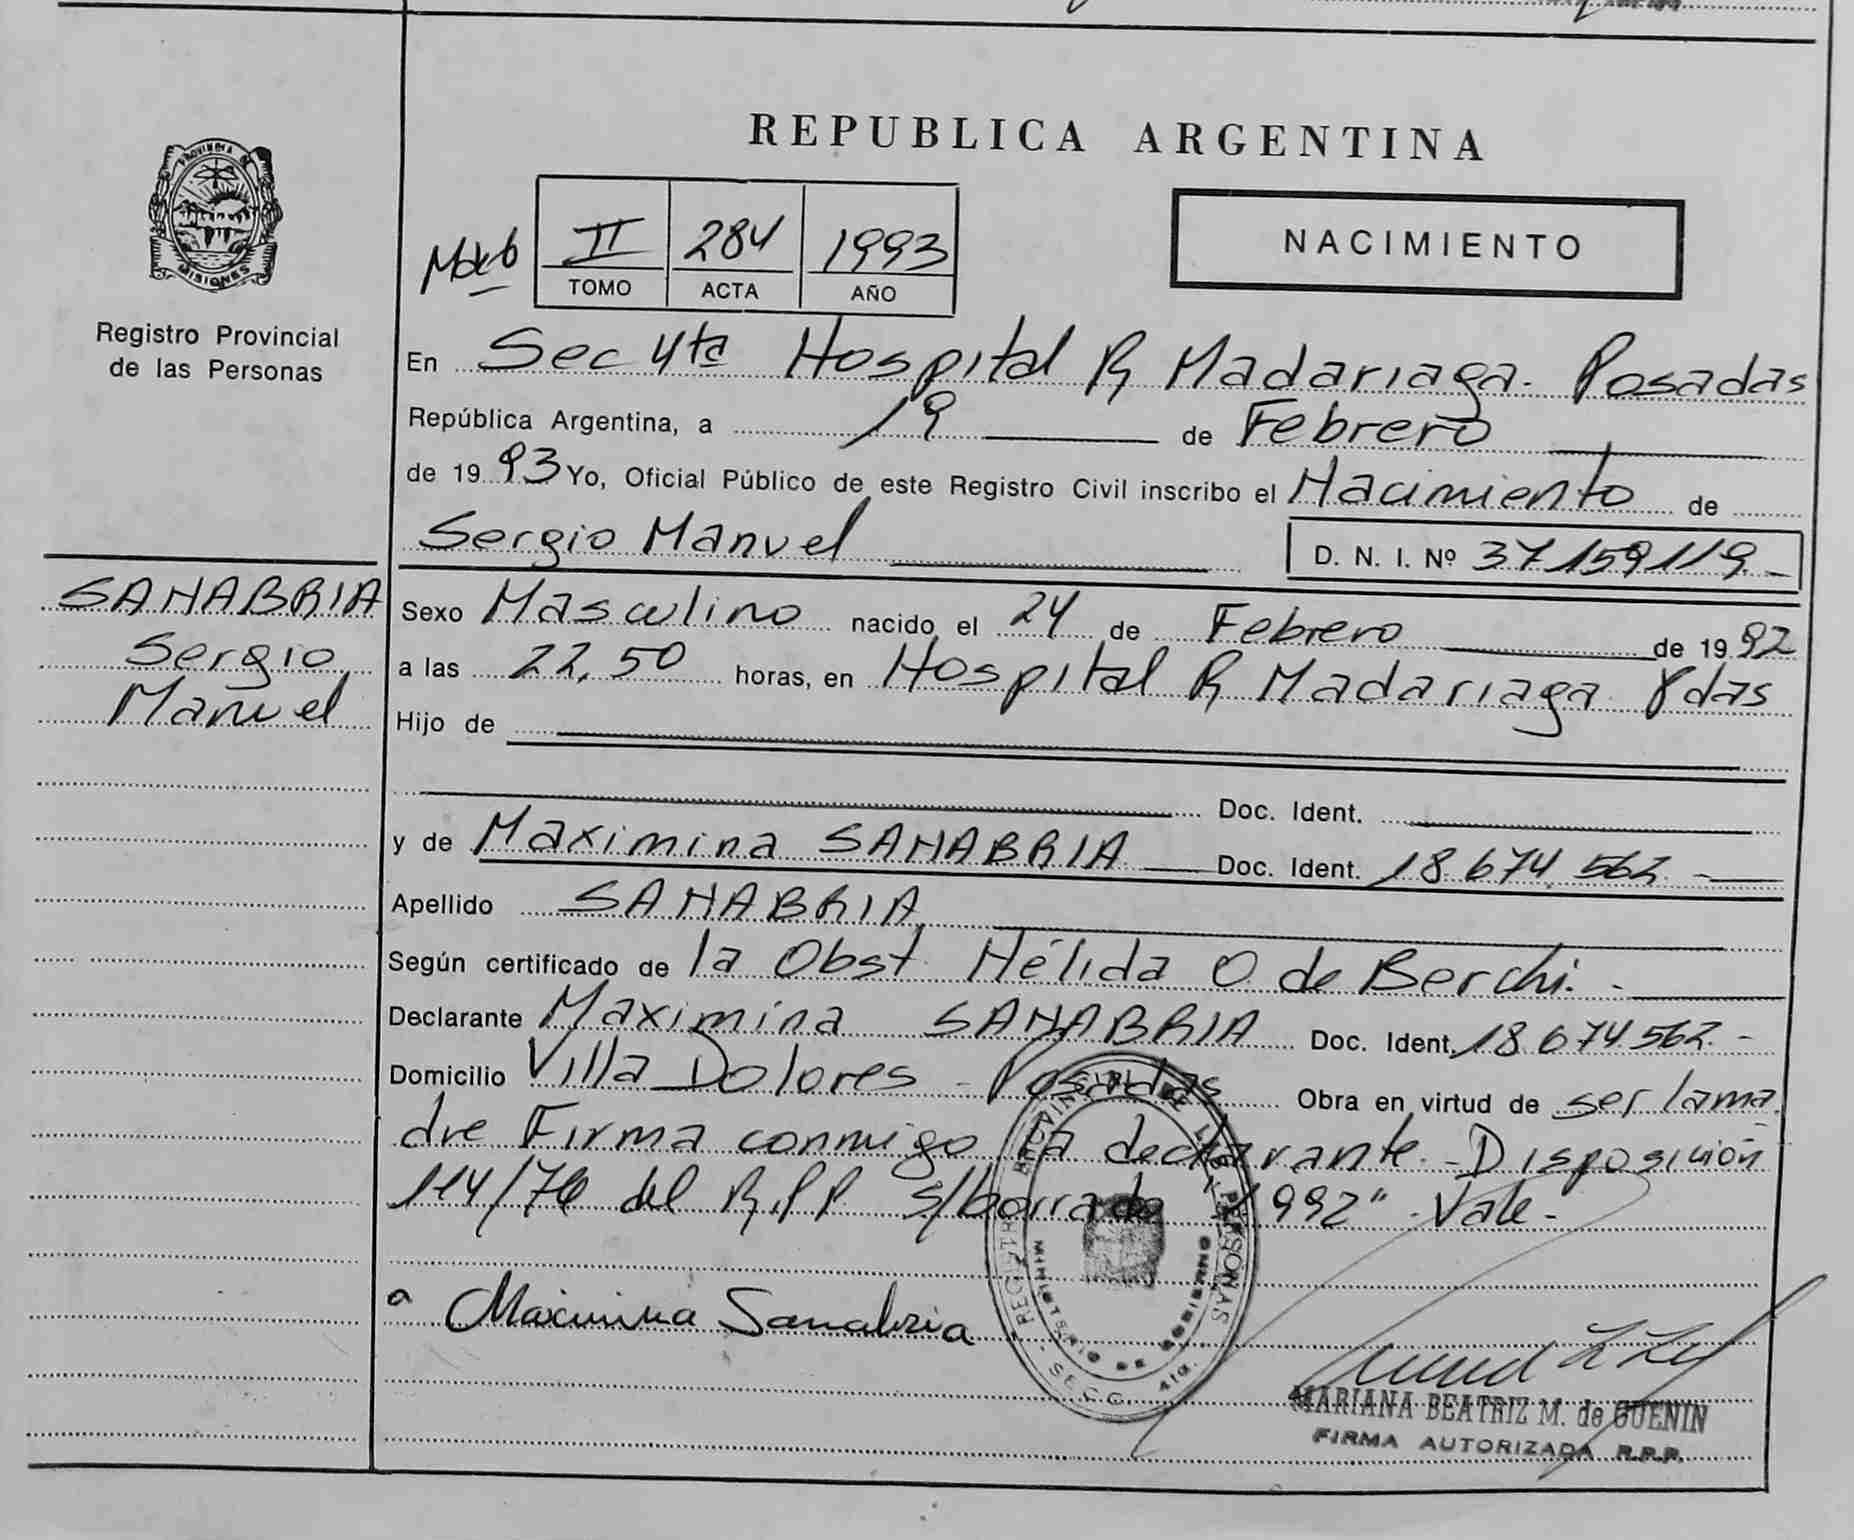 REPUBLICA ARGENTINA
PROVINCIA DE
MISIONES
Registro Provincial
de las Personas
II 284 1993
TOMO ACTA AÑO
NACIMIENTO
En Sec 4ta Hospital R Madariaga. Posadas
República Argentina, a 19 de Febrero
de 1993 Yo, Oficial Público de este Registro Civil inscribo el Nacimiento de
Sergio Manuel D. N. I. Nº 37159119
SANABRIA
Sergio
Manuel
Sexo Masculino nacido el 24 de Febrero de 1992
a las 22,50 horas, en Hospital R Madariaga Pdas
Hijo de
Doc. Ident.
y de Maximina SANABRIA Doc. Ident. 18.674.562
Apellido SANABRIA
Según certificado de la Obst. Nélida O. de Berchi.
Declarante Maximina SANABRIA Doc. Ident. 18.674.562
Domicilio Villa Dolores - Posadas Obra en virtud de ser la ma
dre Firma conmigo la declarante. Disposición
114/76 del R.P.P. s/borrado "1992". Vale-
Maximina Sanabria
REGISTRO PROVINCIAL DE LAS PERSONAS
MINISTERIO DE GOBIERNO
SECC. 4ta.
MARIANA BEATRIZ M. de GUENIN
FIRMA AUTORIZADA R.P.P.